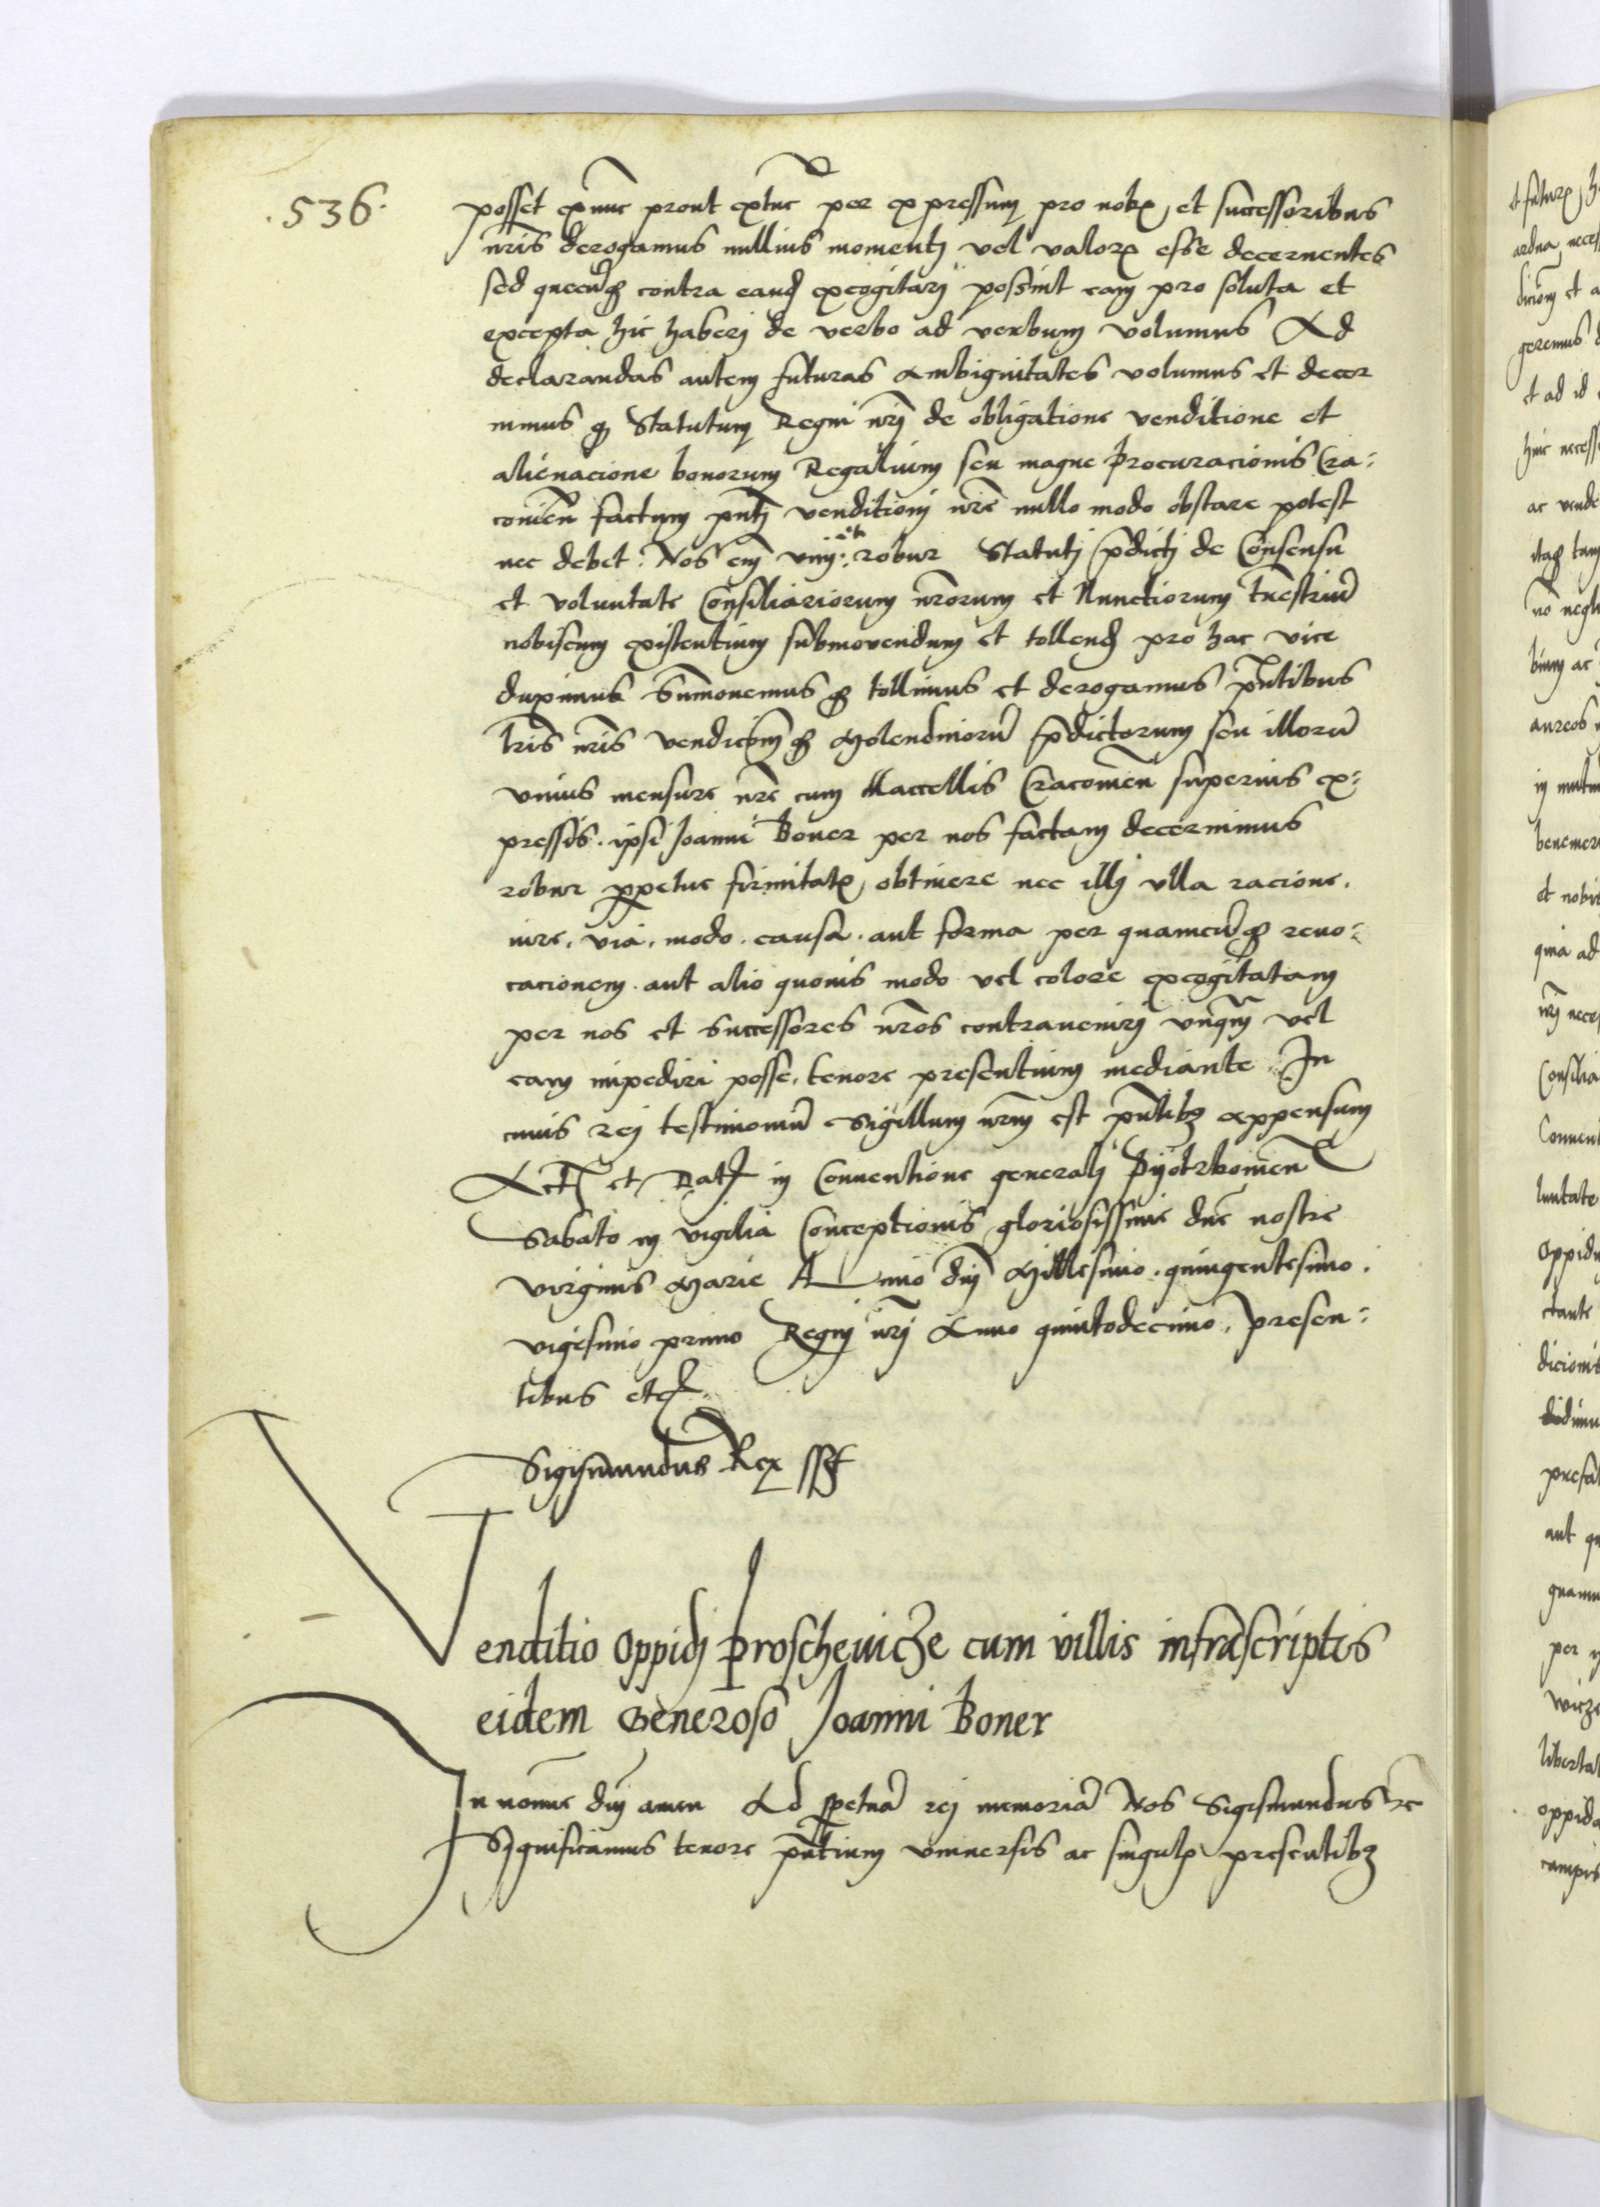 .536.
posset exnunc prout extunc per expressum pro nobis et successoribus
nris derogamus nullius momenti vel valoris esse decernentes
sed quecunq contra eand excogitari possint eam pro soluta et
excepta hic haberi de verbo ad verbum volumus Ad
declarandas autem futuras ambiguitates volumus et decer
nimus q Statutum Regni nri de obligatione venditione et
alienacione bonorum Regalium seu magne procuracionis Cra-
covien factum pnti venditioni nre nullo modo obstare potest
nec debet. Nos em robur Statuti pdicti de Consensu
et voluntate Consiliariorum nrorum et Nunctiorum trestriu
nobiscum existentium submovendum et tollend pro hac vice
duximus Summovemus q tollimus et derogamus pntibus
lris nris vendicionem q Molendinoru pdictorum seu illoru
unius mensure nre cum Maccellis Cracovien superius ex-
pressis. ipsi Joanni Boner per nos factam decernimus
robur ppetue firmitatis obtinere nec illi ulla racione.
iure. via. modo. causa. aut forma per quamcuq revo-
cacionem aut alio quovis modo vel colore excogitatam
per nos et Successores nros contraveniri unqm vel
eam impediri posse, tenore presentium mediante In
cuius rei testimoniu Sigillum nrm est pntibz appensum
Act et Dat in Conventione generali Pyotrkovien
Sabato in vigilia Conceptionis gloriosissime dne nostre
virginis Marie Anno dni Millesimo. quingentesimo.
vigesimo primo Regni nri Anno quintodecimo, presen-
tibus etc
Sigismundus Rex sst
Venditio Oppidi Proschevicze cum villis infrascriptis
eidem Generoso Joanni Boner
In nomine dni amen Ad ppetua rei memoria Nos Sigismundus etc
Significamus tenore pntium universis ac singulis presentibz